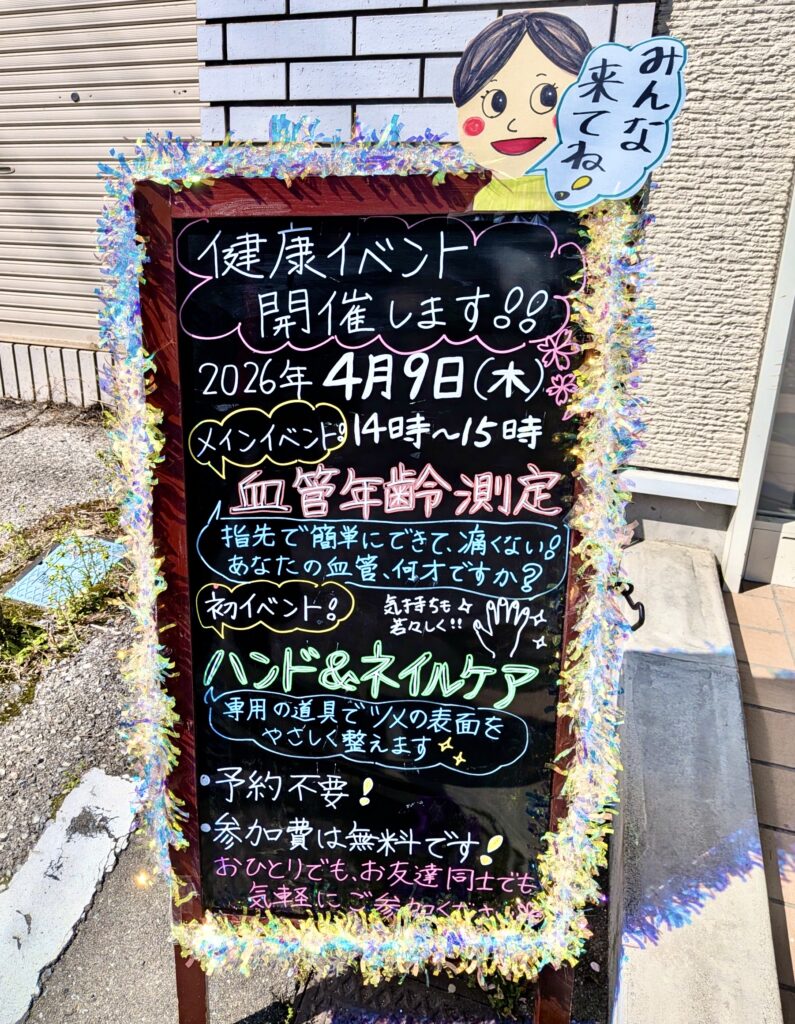 みんな
来てね!
健康イベント
開催します!!
2026年 4月9日(木)
メインイベント! 14時~15時
血管年齢測定
指先で簡単にできて、痛くない!
あなたの血管、何才ですか?
初イベント!
気持ちも
若々しく!!
ハンド&ネイルケア
専用の道具でツメの表面を
やさしく整えます
・予約不要!
・参加費は無料です!
おひとりでも、お友達同士でも
気軽にご参加ください